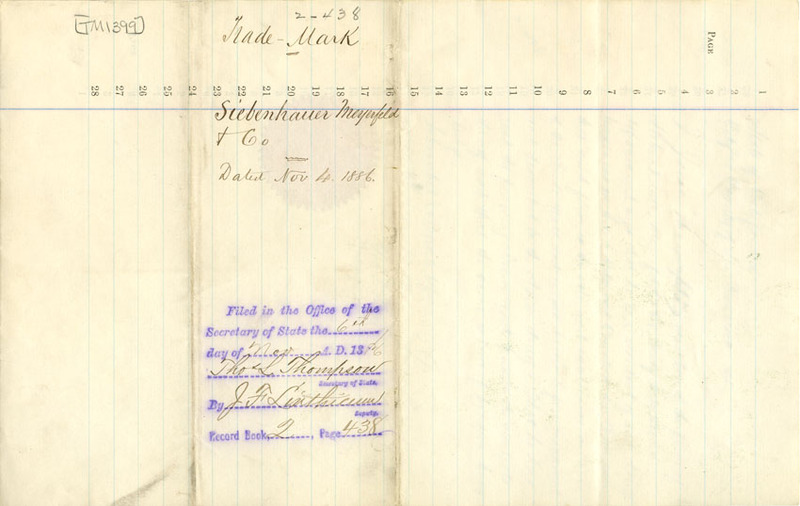 [TM1399]
2-438
Trade-Mark
PAGE
1
2
3
4
5
6
7
8
9
10
11
12
13
14
15
16
17
18
19
20
21
22
23
24
25
26
27
28
Siebenhauer Meyerfeld
& Co
Dated Nov 4. 1886.
Filed in the Office of the
Secretary of State the 6th
day of Nov A. D. 1886
Thos L Thompson
Secretary of State.
By J F Linthicum
Deputy.
Record Book 2, Page 438